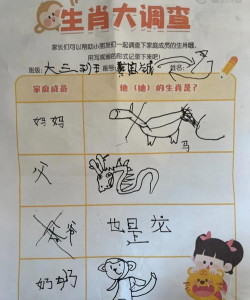 生肖大调查
家长们可以帮助小朋友们一起调查下家庭成员的生肖哦,
用写或画的形式记录下来吧!
班级: 大三 姓名:
家庭成员
他(她)的生肖是?
妈妈
马
父
爷
也是龙
奶奶